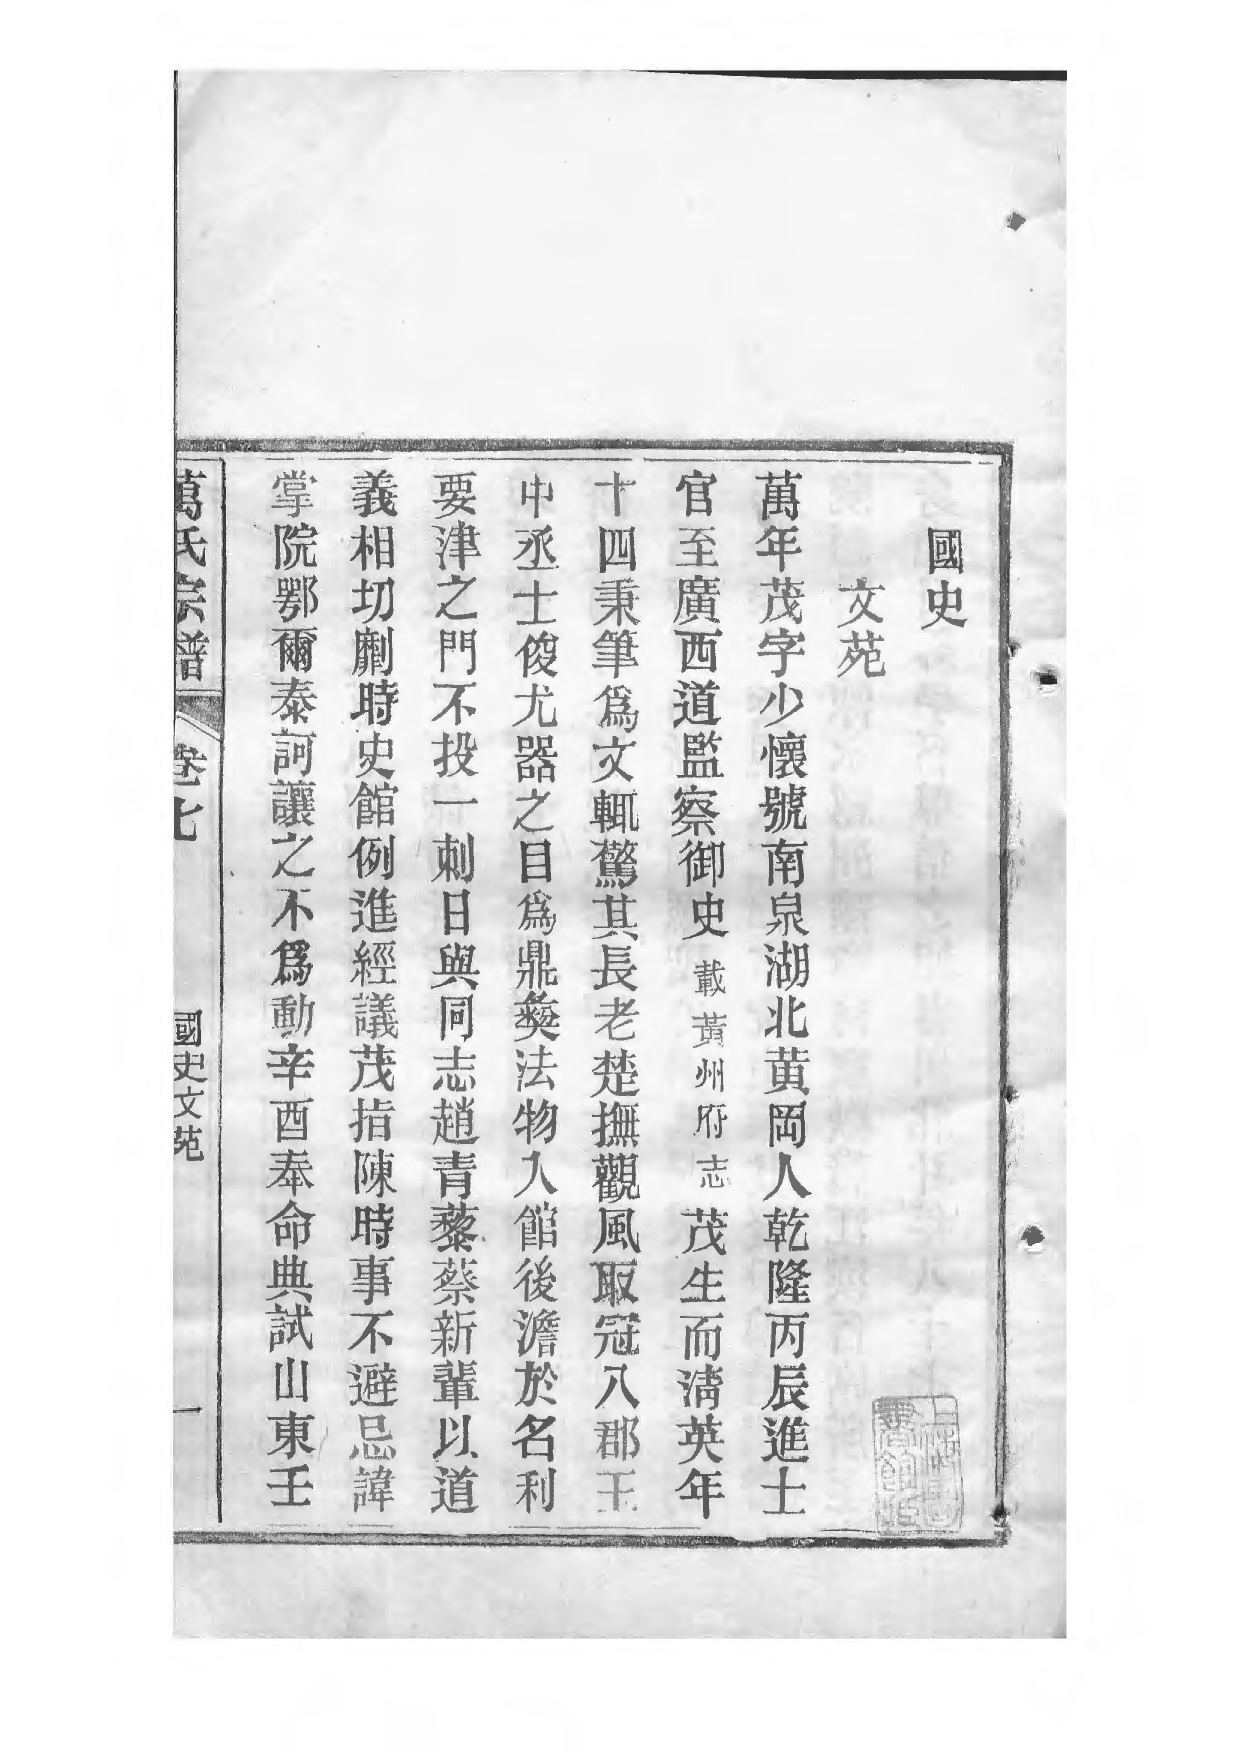 國史
文苑
萬年茂字少懷號南泉湖北黄岡人乾隆丙辰進士
官至廣西道監察御史載黃州府志茂生而淸英年
十四秉筆爲文輒驚其長老楚撫觀風取冠八郡王
中丞士俊尤器之目爲鼎彜法物入館後澹於名利
要津之門不投一刺日與同志趙青藜蔡新輩以道
義相切劘時史館例進經議茂指陳時事不避忌諱
掌院鄂爾泰訶讓之不爲動辛酉奉命典試山東壬
萬氏宗譜
卷七
國史文苑
一